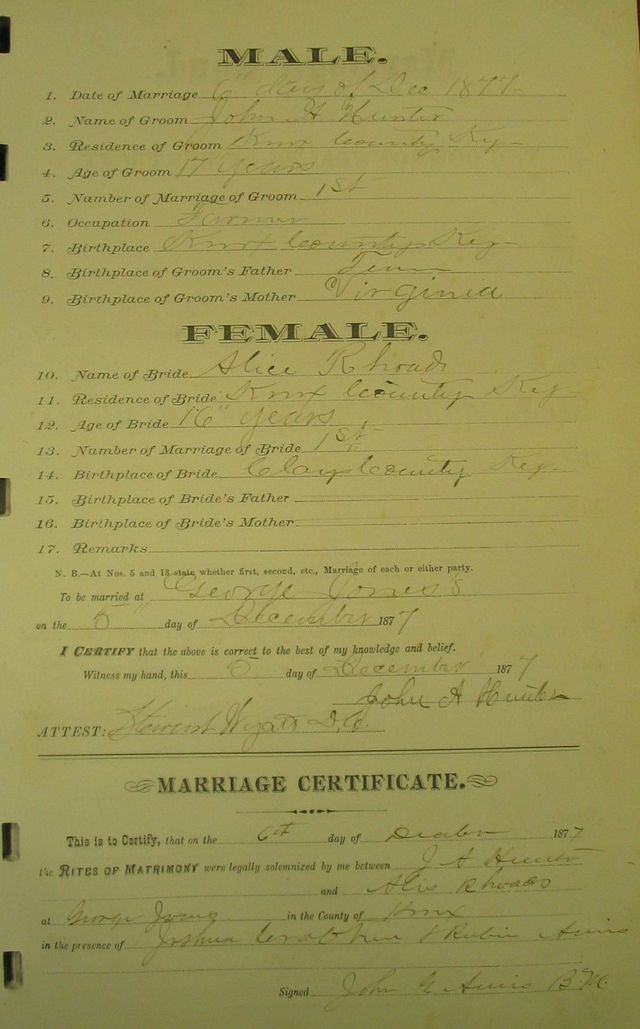 MALE.
1. Date of Marriage 6" day of Dec 1877
2. Name of Groom John H Hunter
3. Residence of Groom Knox County Ky
4. Age of Groom 17 years
5. Number of Marriage of Groom 1st
6. Occupation Farmer
7. Birthplace Knox County Ky
8. Birthplace of Groom's Father Tenn
9. Birthplace of Groom's Mother Virginia
FEMALE.
10. Name of Bride Alice Rhoads
11. Residence of Bride Knox County Ky
12. Age of Bride 16" years
13. Number of Marriage of Bride 1st
14. Birthplace of Bride Clay County Ky
15. Birthplace of Bride's Father
16. Birthplace of Bride's Mother
17. Remarks
N. B.—At Nos. 5 and 13 state whether first, second, etc., Marriage of each or either party.
To be married at George Jones's
on the day of December 1877
I CERTIFY that the above is correct to the best of my knowledge and belief.
Witness my hand, this 5 day of December 1877
John A Hunter
ATTEST: Stewart Wyatt D.C.
MARRIAGE CERTIFICATE.
This is to Certify, that on the 6th day of 1877
the RITES OF MATRIMONY were legally solemnized by me between J A Hunter
and Alis Rhoads
at George in the County of Knox
in the presence of Joshua & Rubin
Signed John